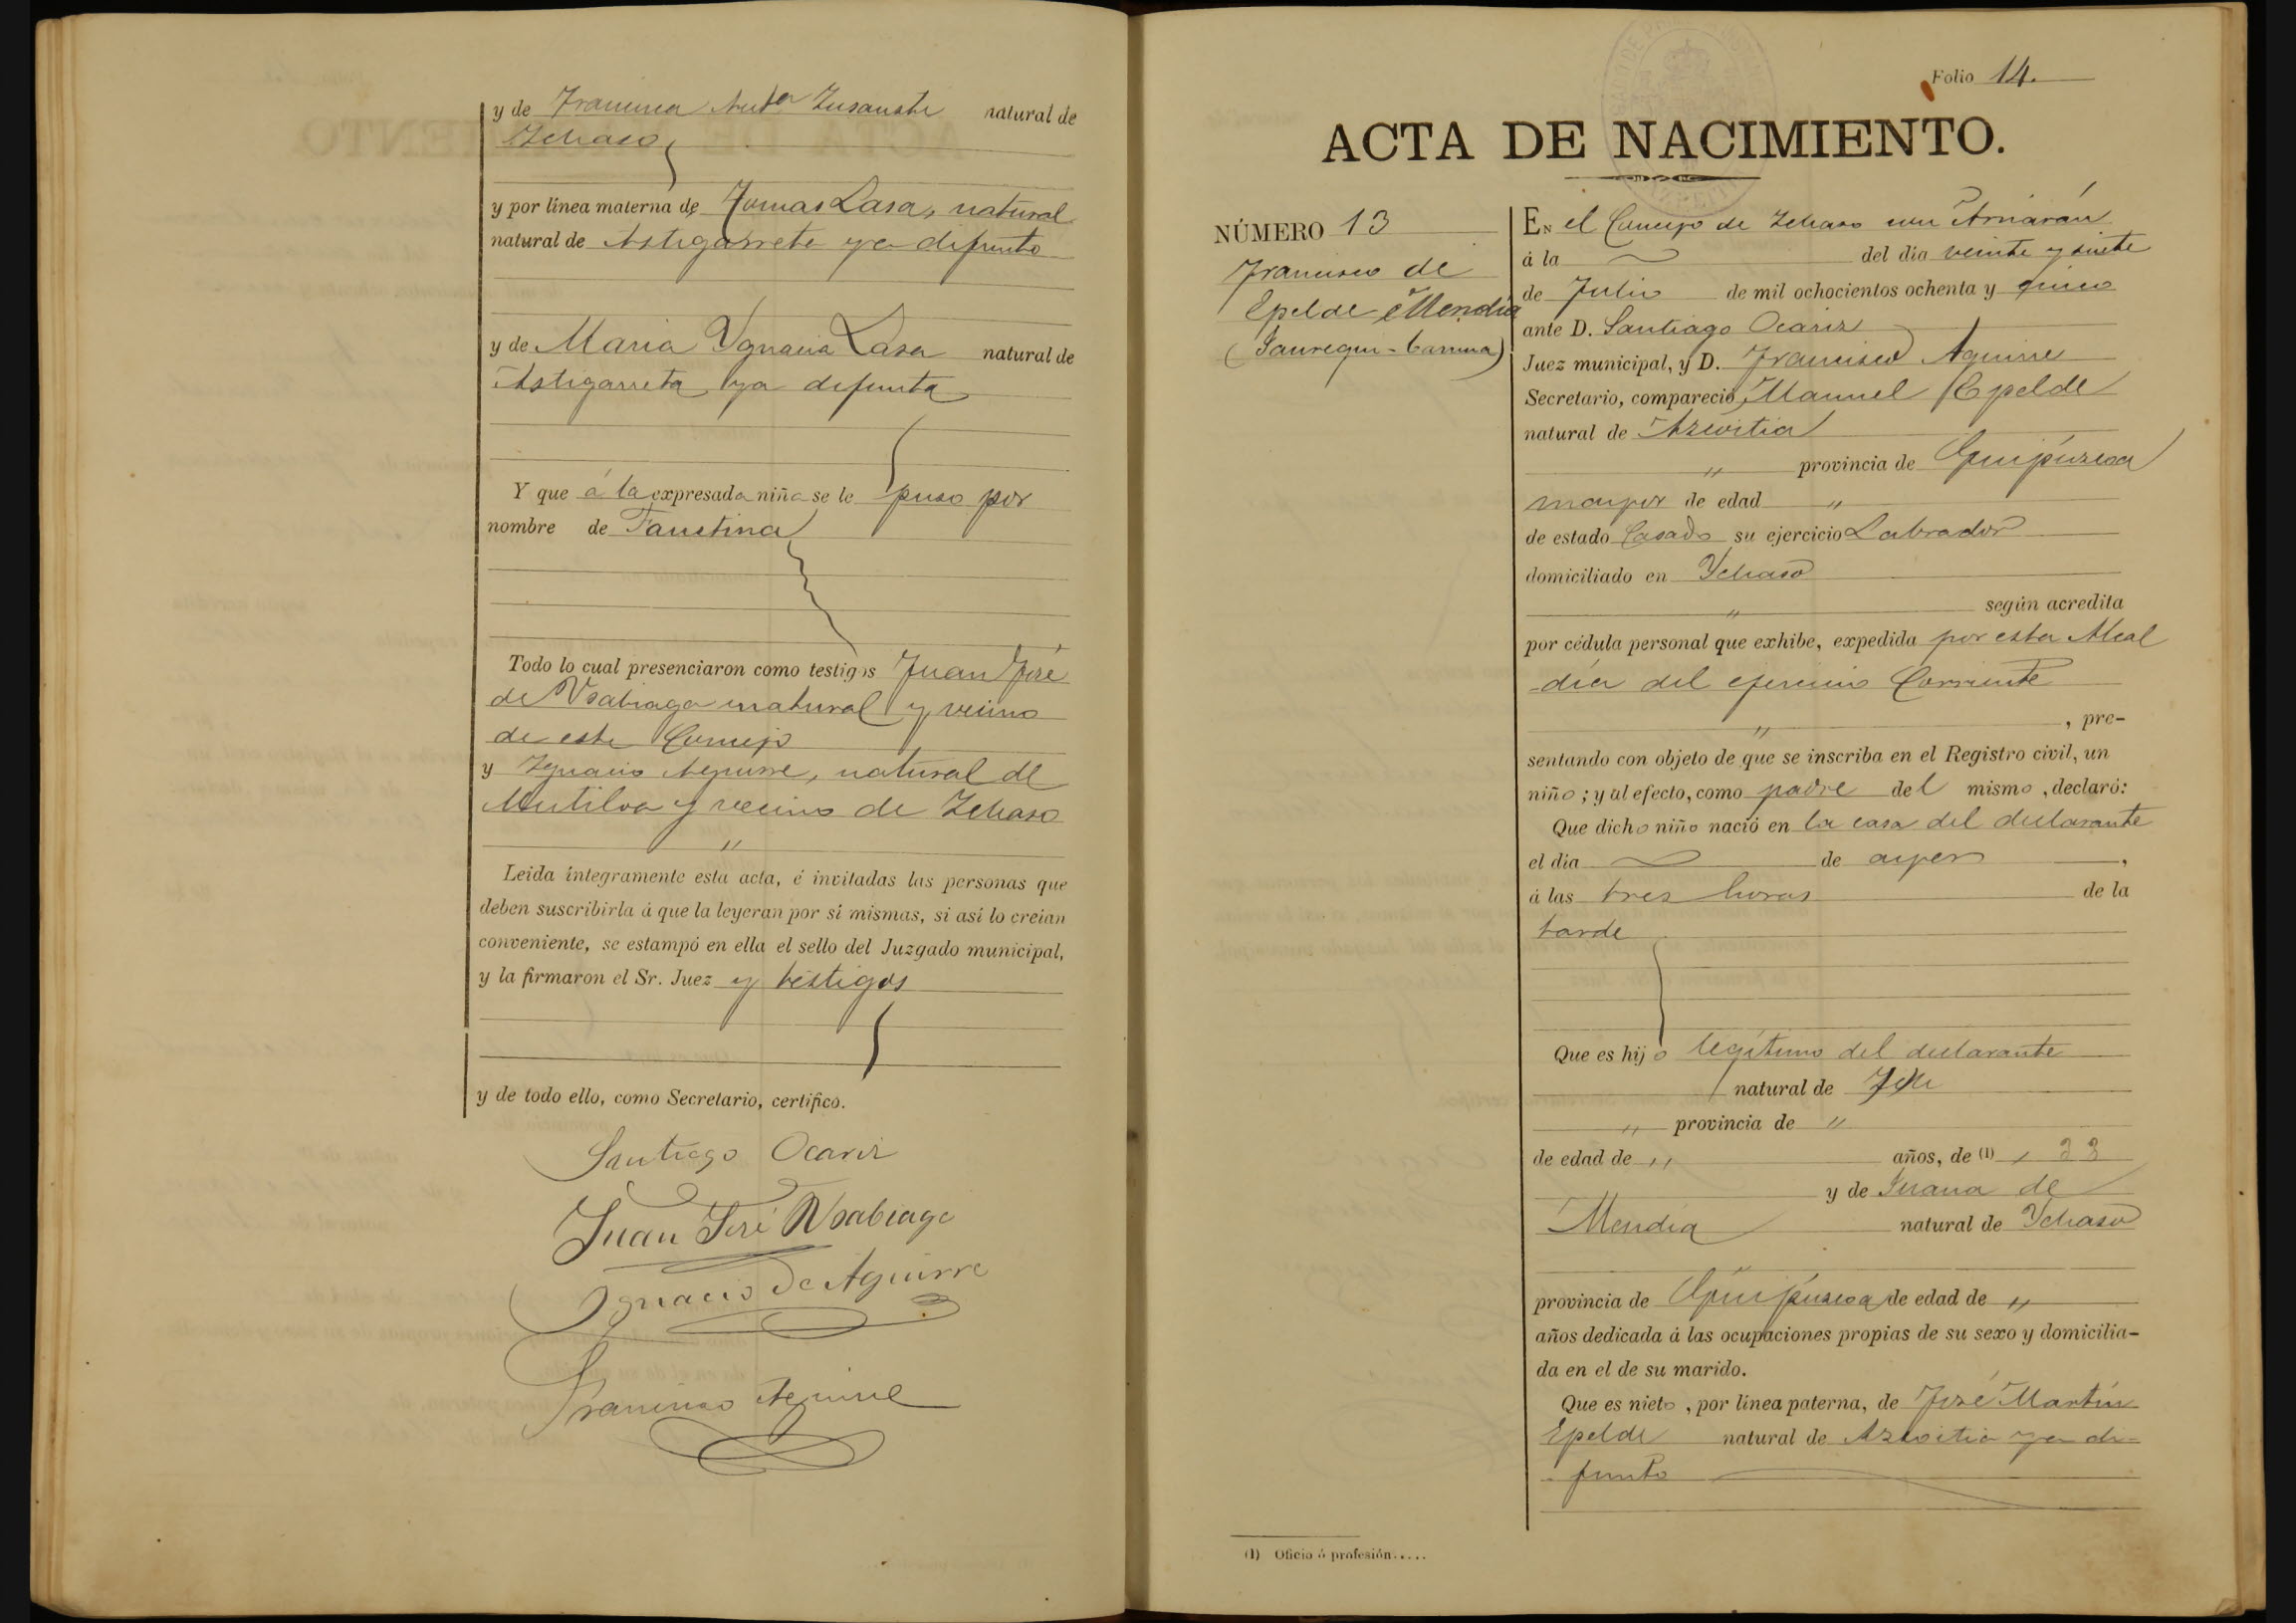 y de Francisca Ant.a Insausti natural de
Ychaso
y por línea materna de Tomas Lasa, natural
natural de Astigarreta ya difunto
y de Maria Ygnacia Lasa natural de
Astigarreta ya difunta
Y que á la expresada niña se le puso por
nombre de Faustina
Todo lo cual presenciaron como testigos Juan José
de Usabiaga natural y vecino
de este Concejo
y Ygnacio Aguirre, natural de
Mutiloa y vecino de Ychaso
"
Leida íntegramente esta acta, é invitadas las personas que
deben suscribirla á que la leyeran por sí mismas, si así lo creian
conveniente, se estampó en ella el sello del Juzgado municipal,
y la firmaron el Sr. Juez y testigos
y de todo ello, como Secretario, certifico.
Santiago Ocariz
Juan José Usabiaga
Ygnacio de Aguirre
Francisco Aguirre
Folio 14.
ACTA DE NACIMIENTO.
NÚMERO 13
Francisco de
Epelde Mendia
(Jauregui-
EN el Concejo de Ychaso con Arriarán
á la del dia veinte y siete
de Julio de mil ochocientos ochenta y cinco
ante D. Santiago Ocariz
Juez municipal, y D. Francisco Aguirre
Secretario, compareció Manuel Epelde
natural de Azcoitia
" provincia de Guipúzcoa
mayor de edad "
de estado Casado su ejercicio Labrador
domiciliado en Ychaso
" según acredita
por cédula personal que exhibe, expedida por esta Alcal
-día del ejercicio Corriente
" , pre-
sentando con objeto de que se inscriba en el Registro civil, un
niño; y al efecto, como padre del mismo, declaró:
Que dicho niño nació en la casa del declarante
el dia de ayer ,
á las tres horas de la
tarde
Que es hijo legítimo del declarante
natural de
" provincia de "
de edad de " años, de (1) 33
y de Juana de
Mendia natural de Ychaso
provincia de Guipúzcoa de edad de "
años dedicada á las ocupaciones propias de su sexo y domicilia-
da en el de su marido.
Que es nieto, por línea paterna, de José Martín
Epelde natural de Azcoitia ya di-
funto
(1) Oficio ó profesión.....